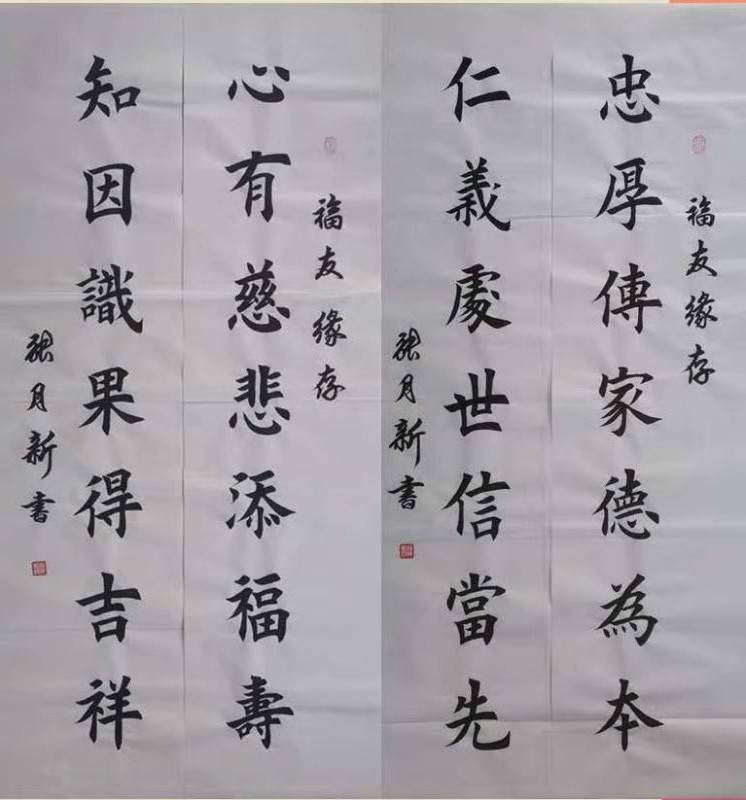 福友緣存
忠厚傳家德為本
仁義處世信當先
張月新書
福友緣存
心有慈悲添福壽
知因識果得吉祥
張月新書